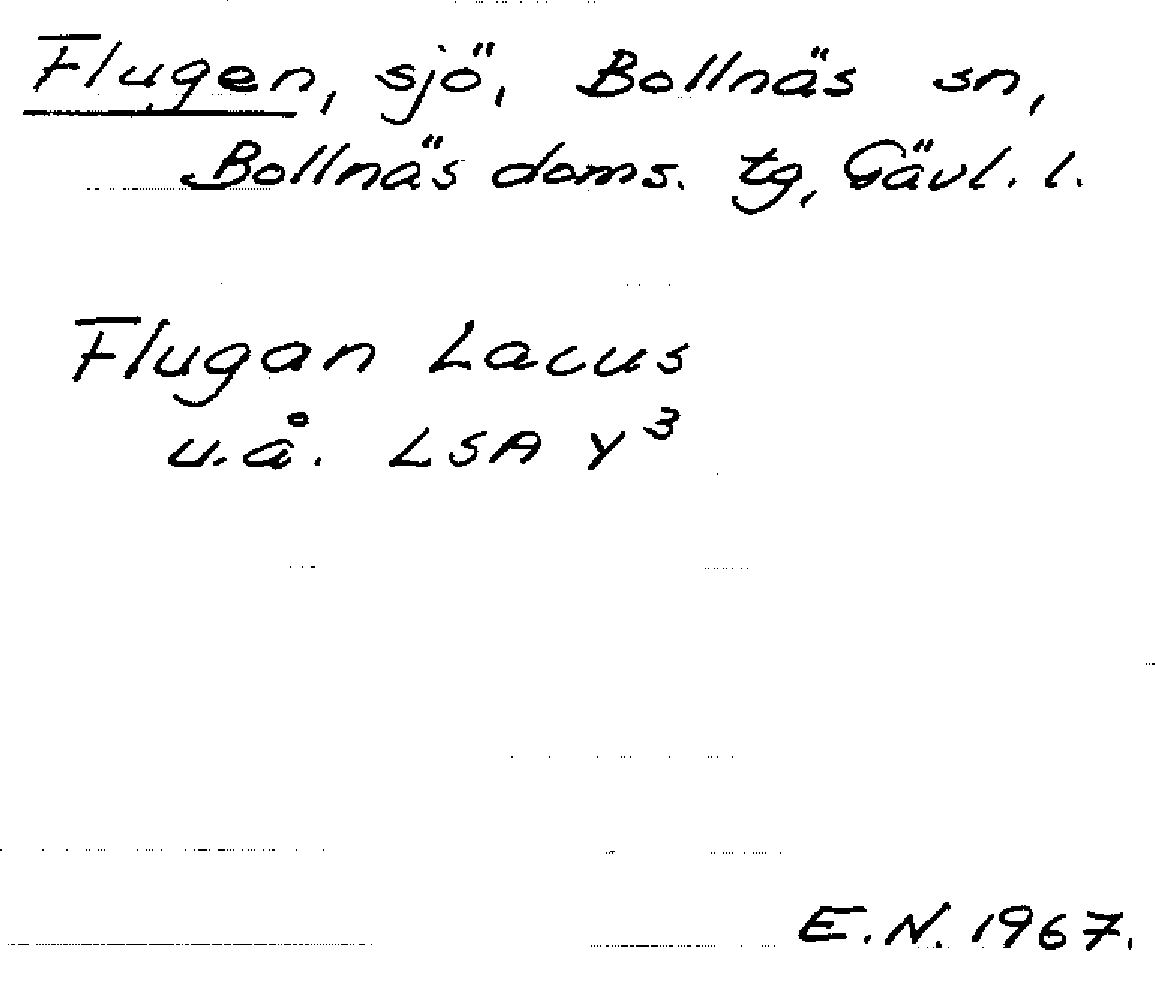 Flugen, sjö, Bollnäs sn,
Bollnäs doms. tg, Gävl. l.
Flugan Lacus
u.å. LSA Y³
E.N. 1967.